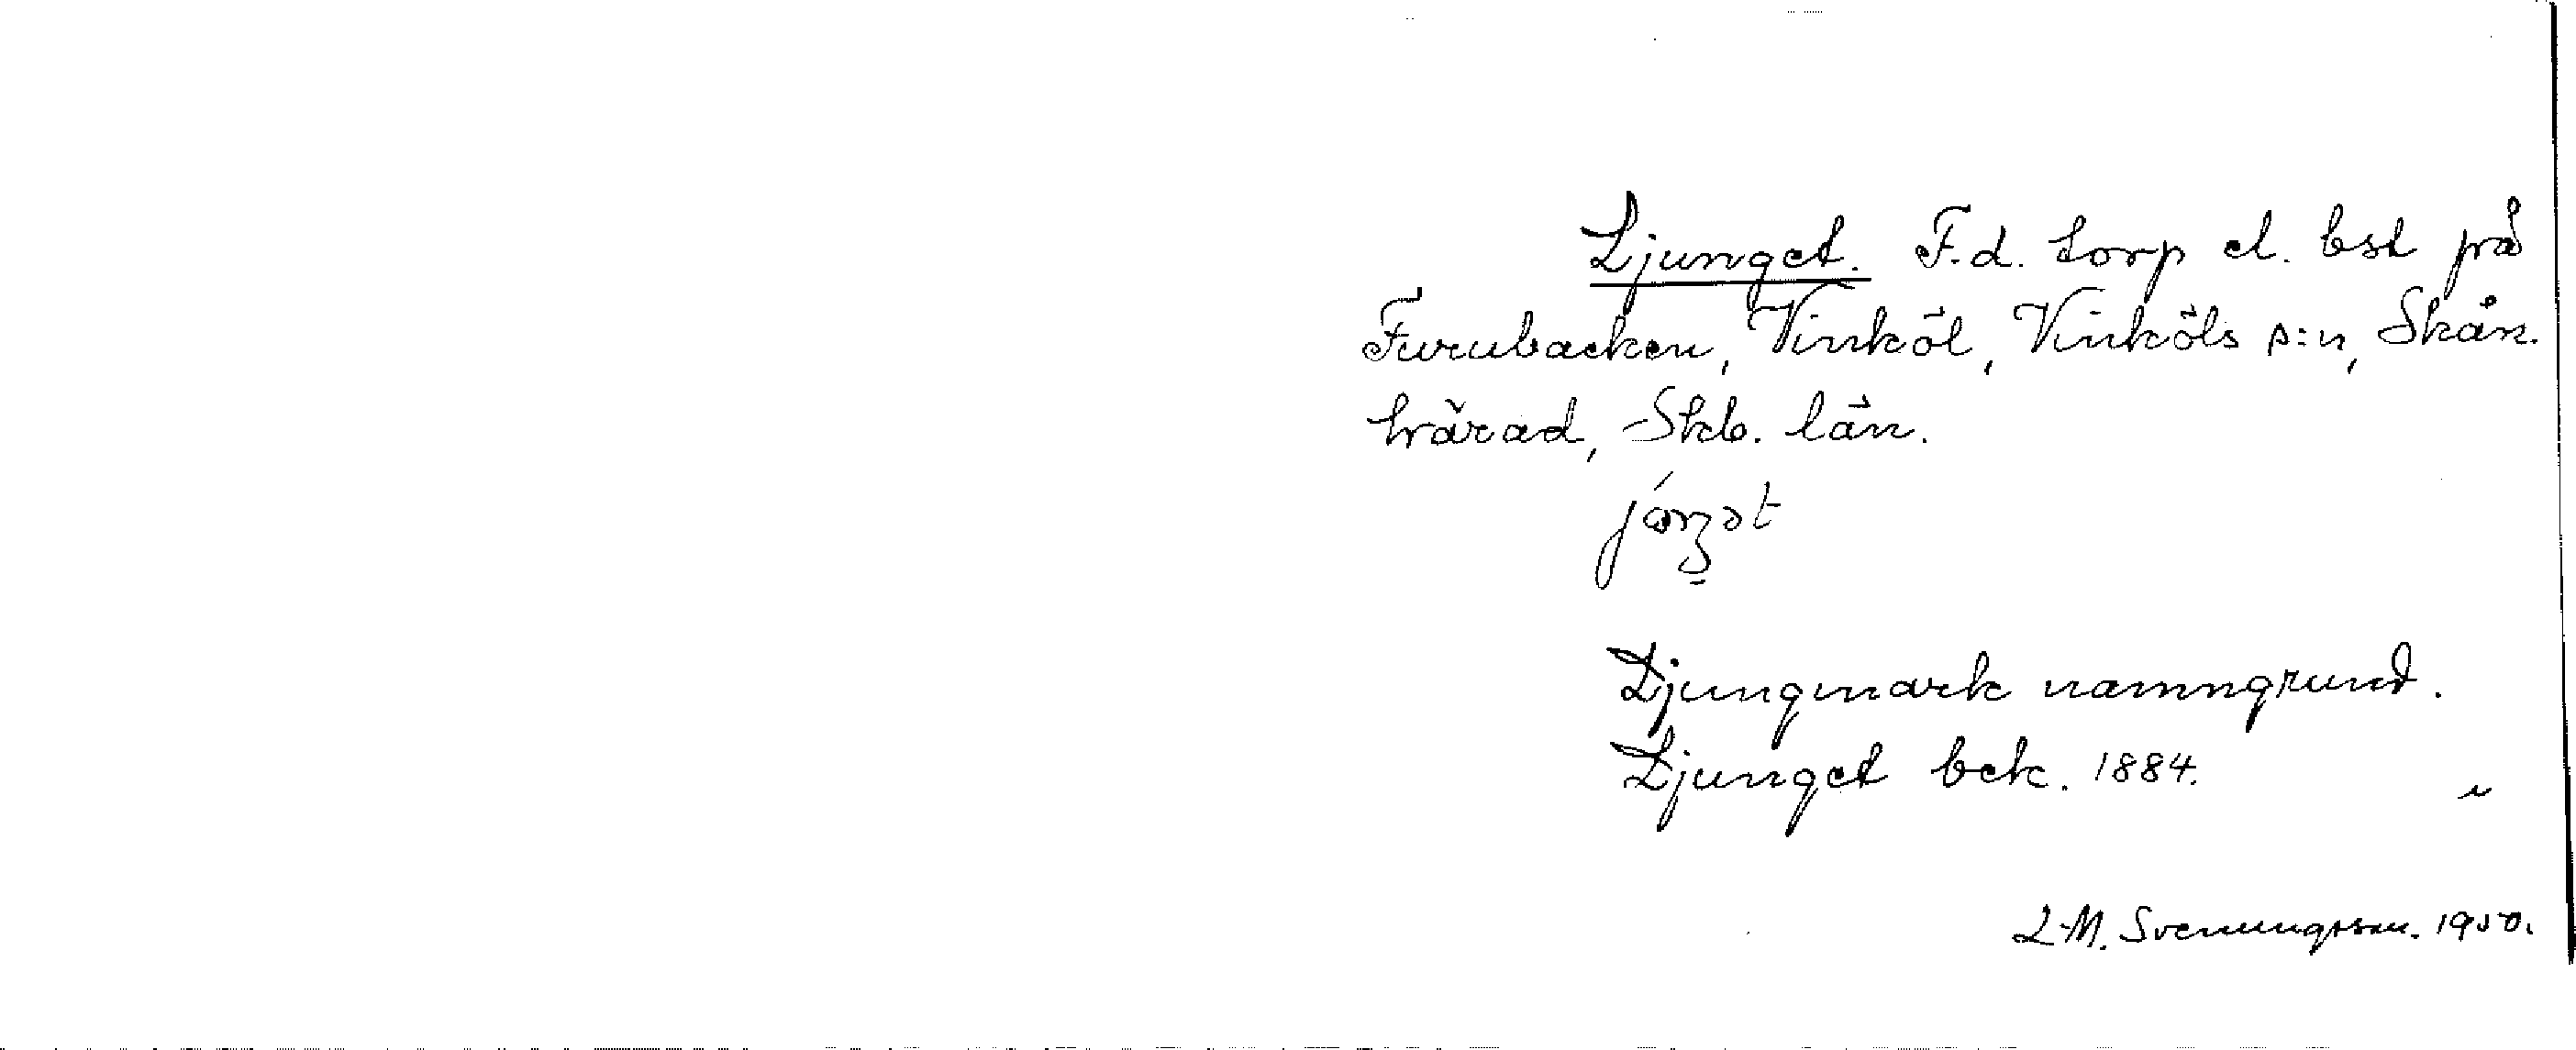 Ljunget. F.d. torp el. bst på
Furubacken, Vinköl, Vinköls s:n, Skån.
härad, Skb. län.
Ljungmark namngrund.
Ljunget bek. 1884. "
L-M. Svenungsson. 1950.